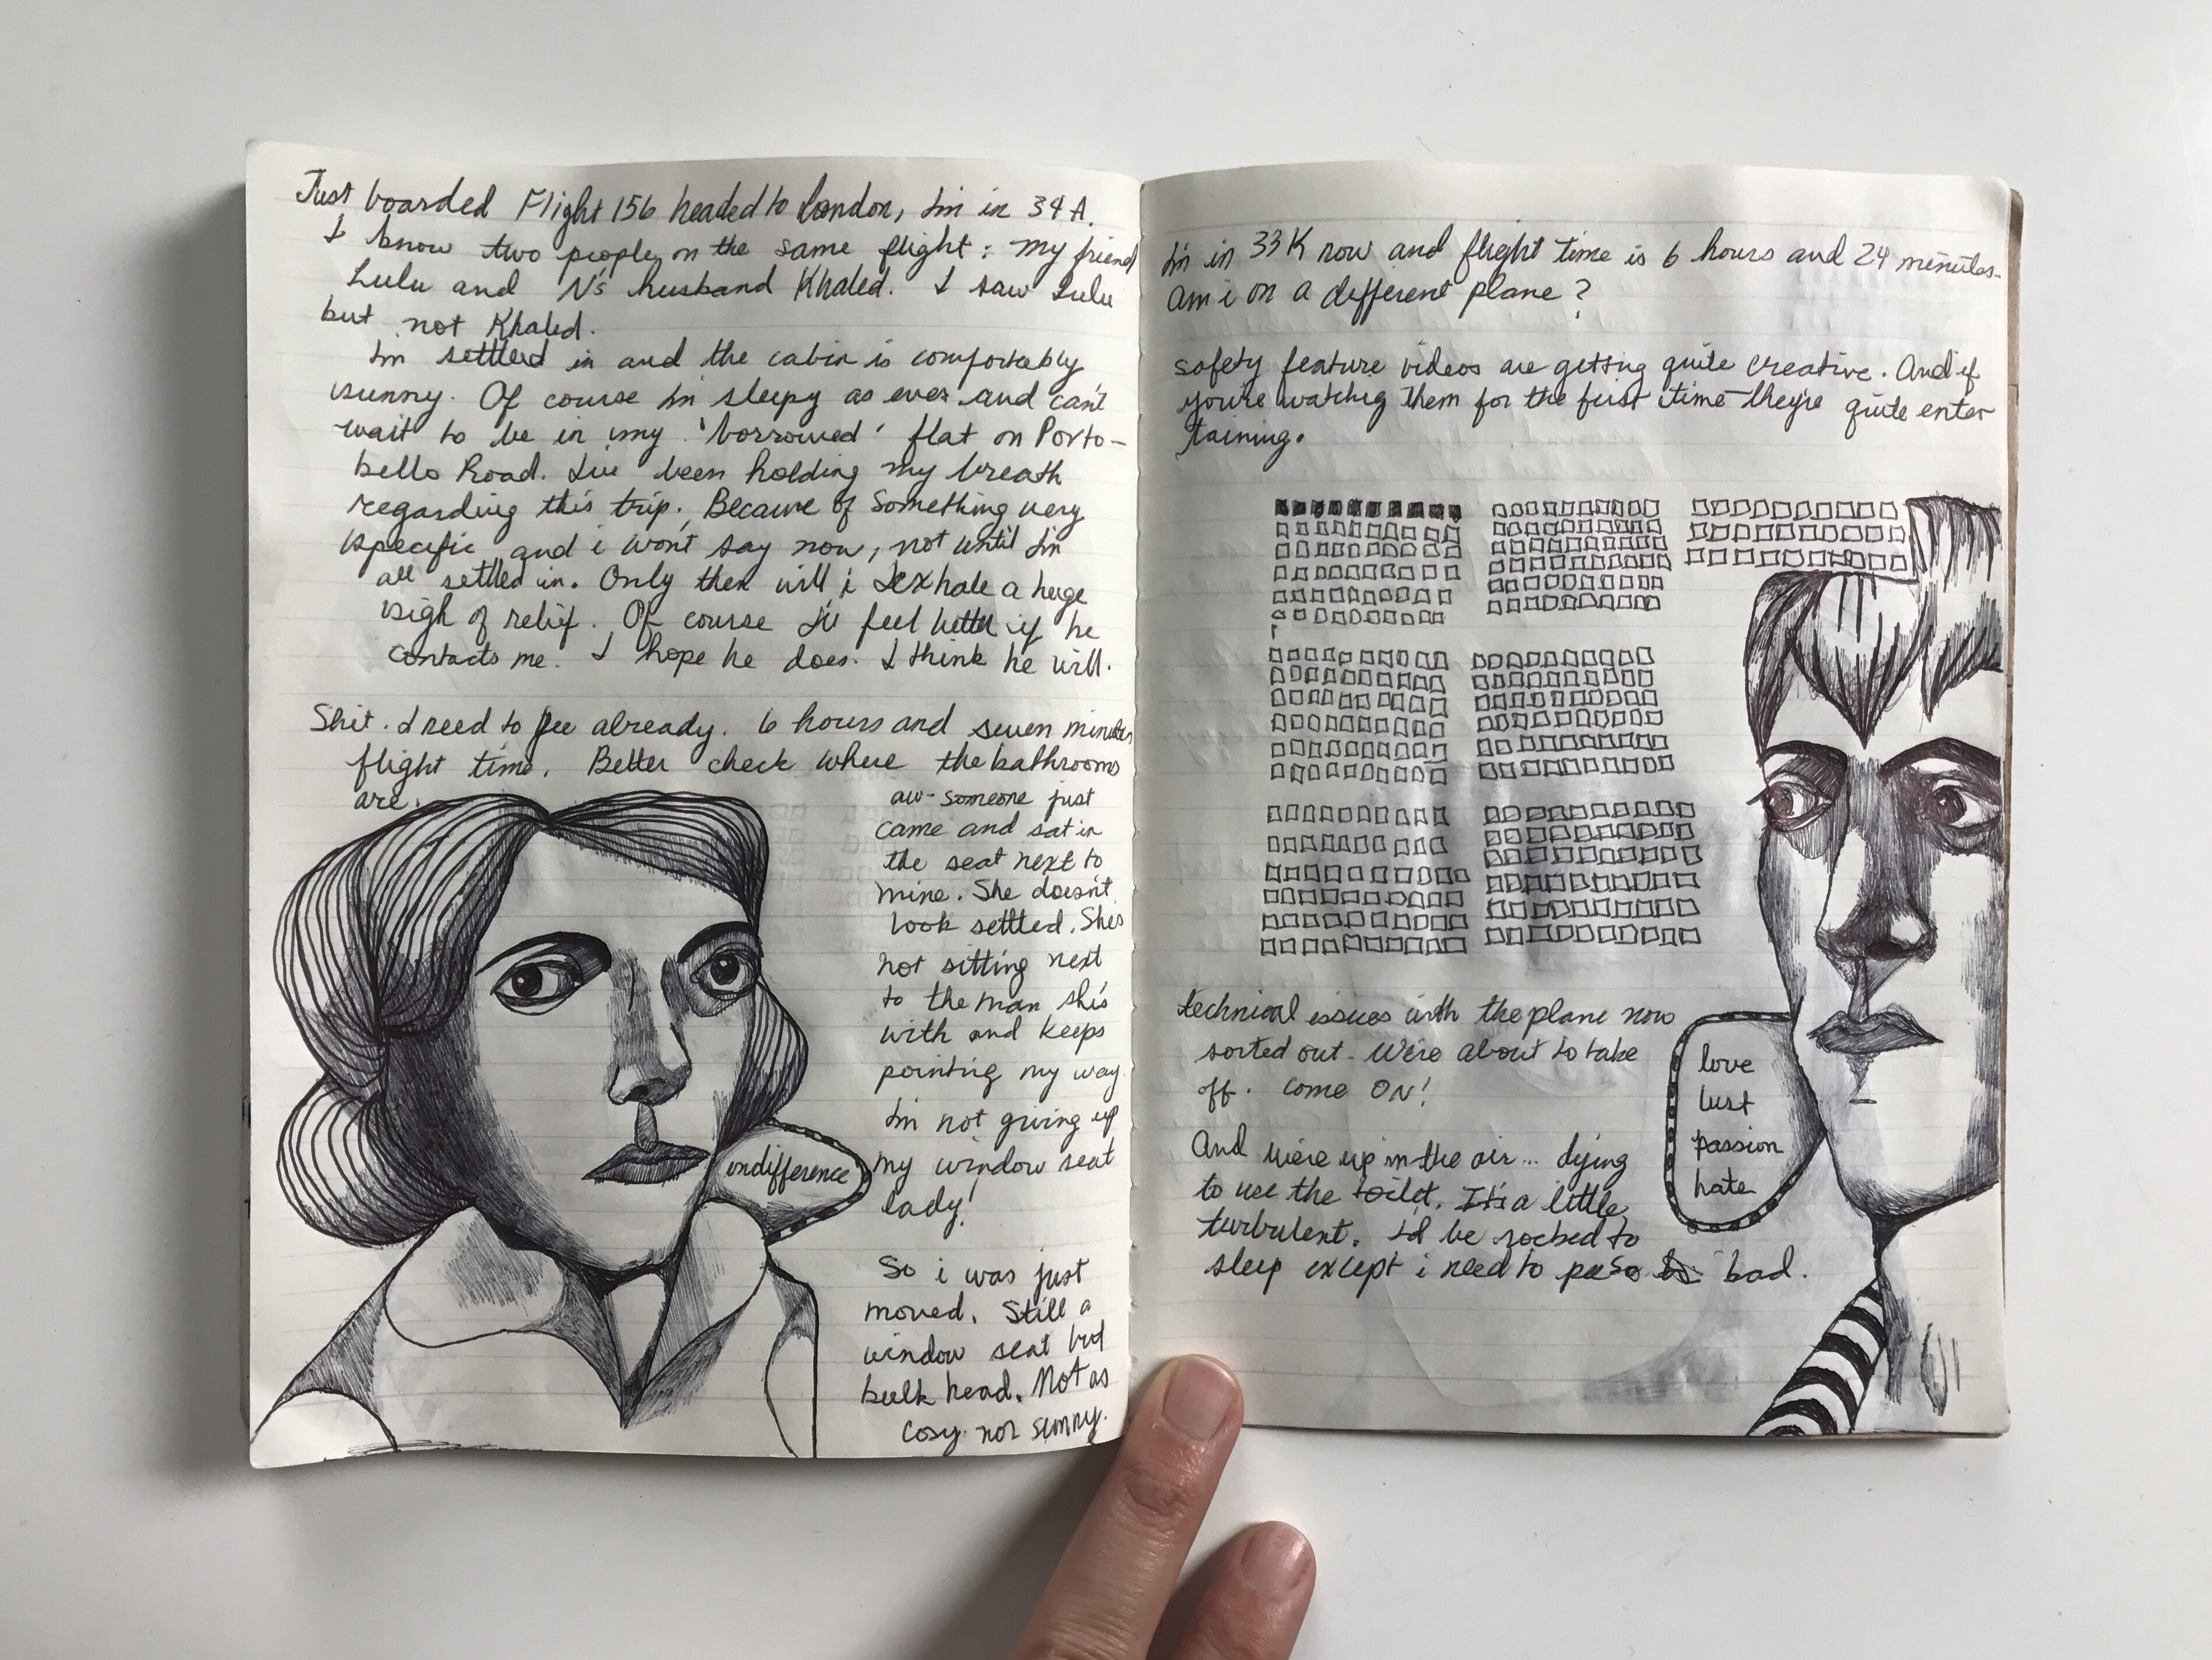 Just boarded Flight 156 headed to London, I'm in 34A.
I know two people on the same flight: my friend
Lulu and N's husband Khaled. I saw Lulu
but not Khaled.
I'm settled in and the cabin is comfortably
sunny. Of course I'm sleepy as ever and can't
wait to be in my 'borrowed' flat on Porto-
bello Road. I've been holding my breath
regarding this trip. Because of something very
specific and i won't say now, not until I'm
all settled in. Only then will i exhale a huge
sigh of relief. Of course I'll feel better if he
contacts me. I hope he does. I think he will.
Shit. I need to pee already. 6 hours and seven minutes
flight time. Better check where the bathrooms
are.
aw- someone just
came and sat in
the seat next to
mine. She doesn't
look settled. She's
not sitting next
to the man she's
with and keeps
pointing my way.
I'm not giving up
my window seat
lady!
indifference
So i was just
moved. Still a
window seat but
bulk head. Not as
cosy nor sunny.
I'm in 33K now and flight time is 6 hours and 24 minutes.
Am i on a different plane?
safety feature videos are getting quite creative. And if
you're watching them for the first time they're quite enter
taining.
technical issues with the plane now
sorted out. We're about to take
off. Come ON!
love
lust
passion
hate
And we're up in the air... dying
to use the toilet. It's a little
turbulent. I'd be rocked to
sleep except i need to pee so bad.